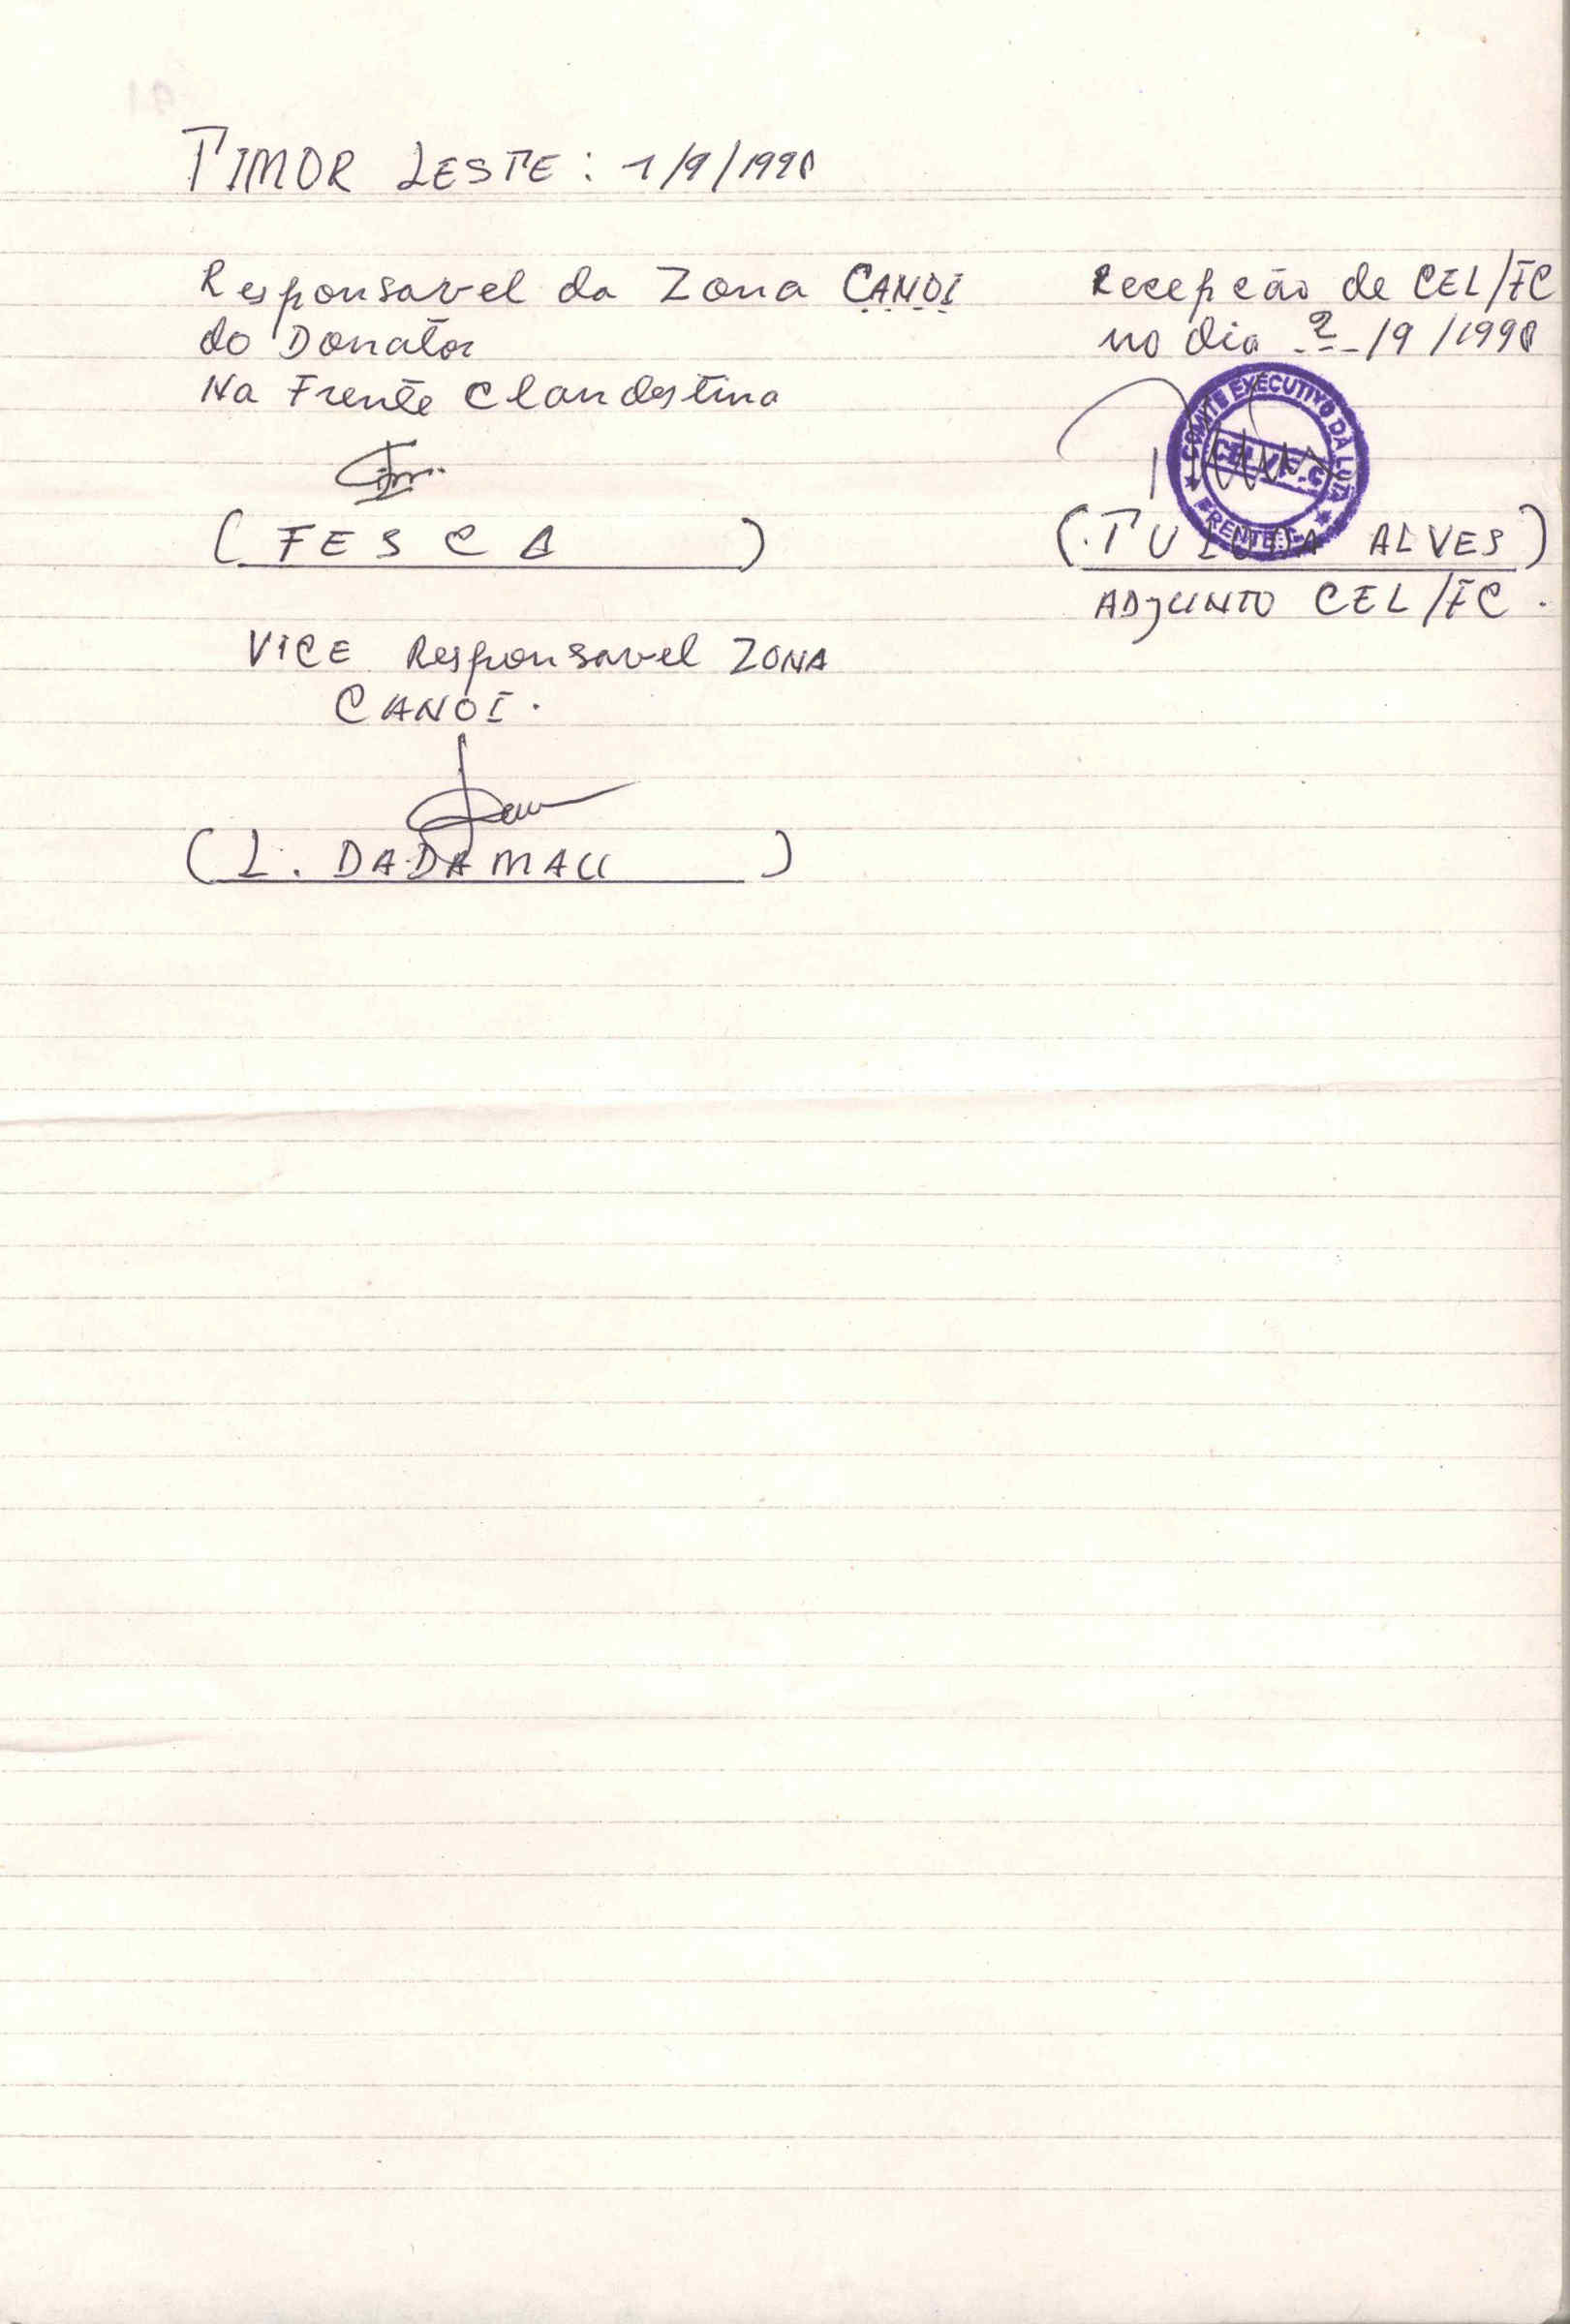 TIMOR LESTE : 1/9/1990
Responsavel da Zona CANOI
do Donator
Na Frente Clandestina
( FESCA )
VICE Responsavel ZONA
CANOI.
( L. DADAMAU )
Recepcão de CEL/FC
no dia 2/9/1990
COMITE EXECUTIVO DA LUTA
CEL/F.C
FRENTE.C
( TULODA ALVES )
ADJUNTO CEL/FC.